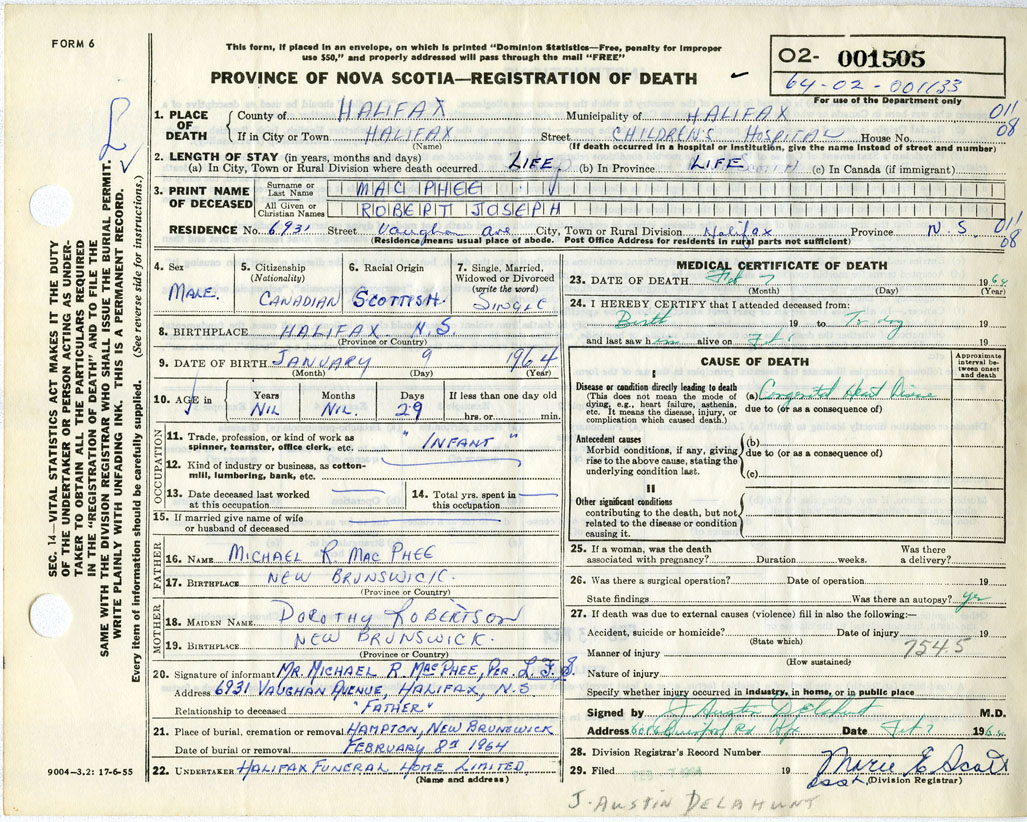 FORM 6
This form, if placed in an envelope, on which is printed "Dominion Statistics—Free, penalty for improper
use $50," and properly addressed will pass through the mail "FREE"
PROVINCE OF NOVA SCOTIA—REGISTRATION OF DEATH
O2- 001505
64-02-001133
For use of the Department only
1. PLACE OF DEATH { County of HALIFAX Municipality of HALIFAX 01/
If in City or Town HALIFAX Street CHILDREN'S HOSPITAL House No. 08
(Name) (If death occurred in a hospital or institution, give the name instead of street and number)
2. LENGTH OF STAY (in years, months and days)
(a) In City, Town or Rural Division where death occurred LIFE (b) In Province LIFE (c) In Canada (if immigrant)
3. PRINT NAME OF DECEASED Surname or Last Name MAC PHEE
All Given or Christian Names ROBERT JOSEPH
RESIDENCE No. 6931 Street Vaughan Ave City, Town or Rural Division Halifax Province N.S. 01/ 08
(Residence means usual place of abode. Post Office Address for residents in rural parts not sufficient)
4. Sex MALE.
5. Citizenship (Nationality) CANADIAN
6. Racial Origin SCOTTISH.
7. Single, Married, Widowed or Divorced (write the word) SINGLE
8. BIRTHPLACE HALIFAX N.S.
(Province or Country)
9. DATE OF BIRTH JANUARY 9 1964
(Month) (Day) (Year)
10. AGE in Years NIL Months NIL. Days 29 If less than one day old hrs. or min.
OCCUPATION
11. Trade, profession, or kind of work as spinner, teamster, office clerk, etc. "INFANT"
12. Kind of industry or business, as cotton-mill, lumbering, bank, etc.
13. Date deceased last worked at this occupation
14. Total yrs. spent in this occupation
15. If married give name of wife or husband of deceased
FATHER
16. NAME MICHAEL R. MAC PHEE
17. BIRTHPLACE NEW BRUNSWICK.
(Province or Country)
MOTHER
18. MAIDEN NAME DOROTHY ROBERTSON
19. BIRTHPLACE NEW BRUNSWICK.
(Province or Country)
20. Signature of informant MR. MICHAEL R. MACPHEE, PER. L.F.S.
Address 6931 VAUGHAN AVENUE, HALIFAX, N.S
Relationship to deceased "FATHER"
21. Place of burial, cremation or removal HAMPTON, NEW BRUNSWICK
Date of burial or removal FEBRUARY 8th 1964
22. UNDERTAKER HALIFAX FUNERAL HOME LIMITED
(Name and address)
MEDICAL CERTIFICATE OF DEATH
23. DATE OF DEATH Feb 7 1964
(Month) (Day) (Year)
24. I HEREBY CERTIFY that I attended deceased from:
Birth 19 to Today 19
and last saw him alive on Feb 19
CAUSE OF DEATH
Approximate interval between onset and death
I
Disease or condition directly leading to death
(This does not mean the mode of
dying, e.g., heart failure, asthenia,
etc. It means the disease, injury, or
complication which caused death.)
(a) Congenital Heart Disease
due to (or as a consequence of)
Antecedent causes
Morbid conditions, if any, giving
rise to the above cause, stating the
underlying condition last.
(b)
due to (or as a consequence of)
(c)
II
Other significant conditions
contributing to the death, but not
related to the disease or condition
causing it.
25. If a woman, was the death associated with pregnancy? Duration weeks. Was there a delivery?
26. Was there a surgical operation? Date of operation 19
State findings Was there an autopsy? yes
27. If death was due to external causes (violence) fill in also the following:—
Accident, suicide or homicide? Date of injury 19
(State which)
Manner of injury 7545
(How sustained)
Nature of injury
Specify whether injury occurred in industry, in home, or in public place
Signed by J Austin Delahunt M.D.
Address Rd Hfx Date Feb 7 1964
28. Division Registrar's Record Number
29. Filed 19 Marie E Scott
(Division Registrar)
J. AUSTIN DELAHUNT
SEC. 14—VITAL STATISTICS ACT MAKES IT THE DUTY
OF THE UNDERTAKER OR PERSON ACTING AS UNDER-
TAKER TO OBTAIN ALL THE PARTICULARS REQUIRED
IN THE "REGISTRATION OF DEATH" AND TO FILE THE
SAME WITH THE DIVISION REGISTRAR WHO SHALL ISSUE THE BURIAL PERMIT.
WRITE PLAINLY WITH UNFADING INK. THIS IS A PERMANENT RECORD.
Every item of information should be carefully supplied. (See reverse side for instructions.)
9004-3.2: 17-6-55